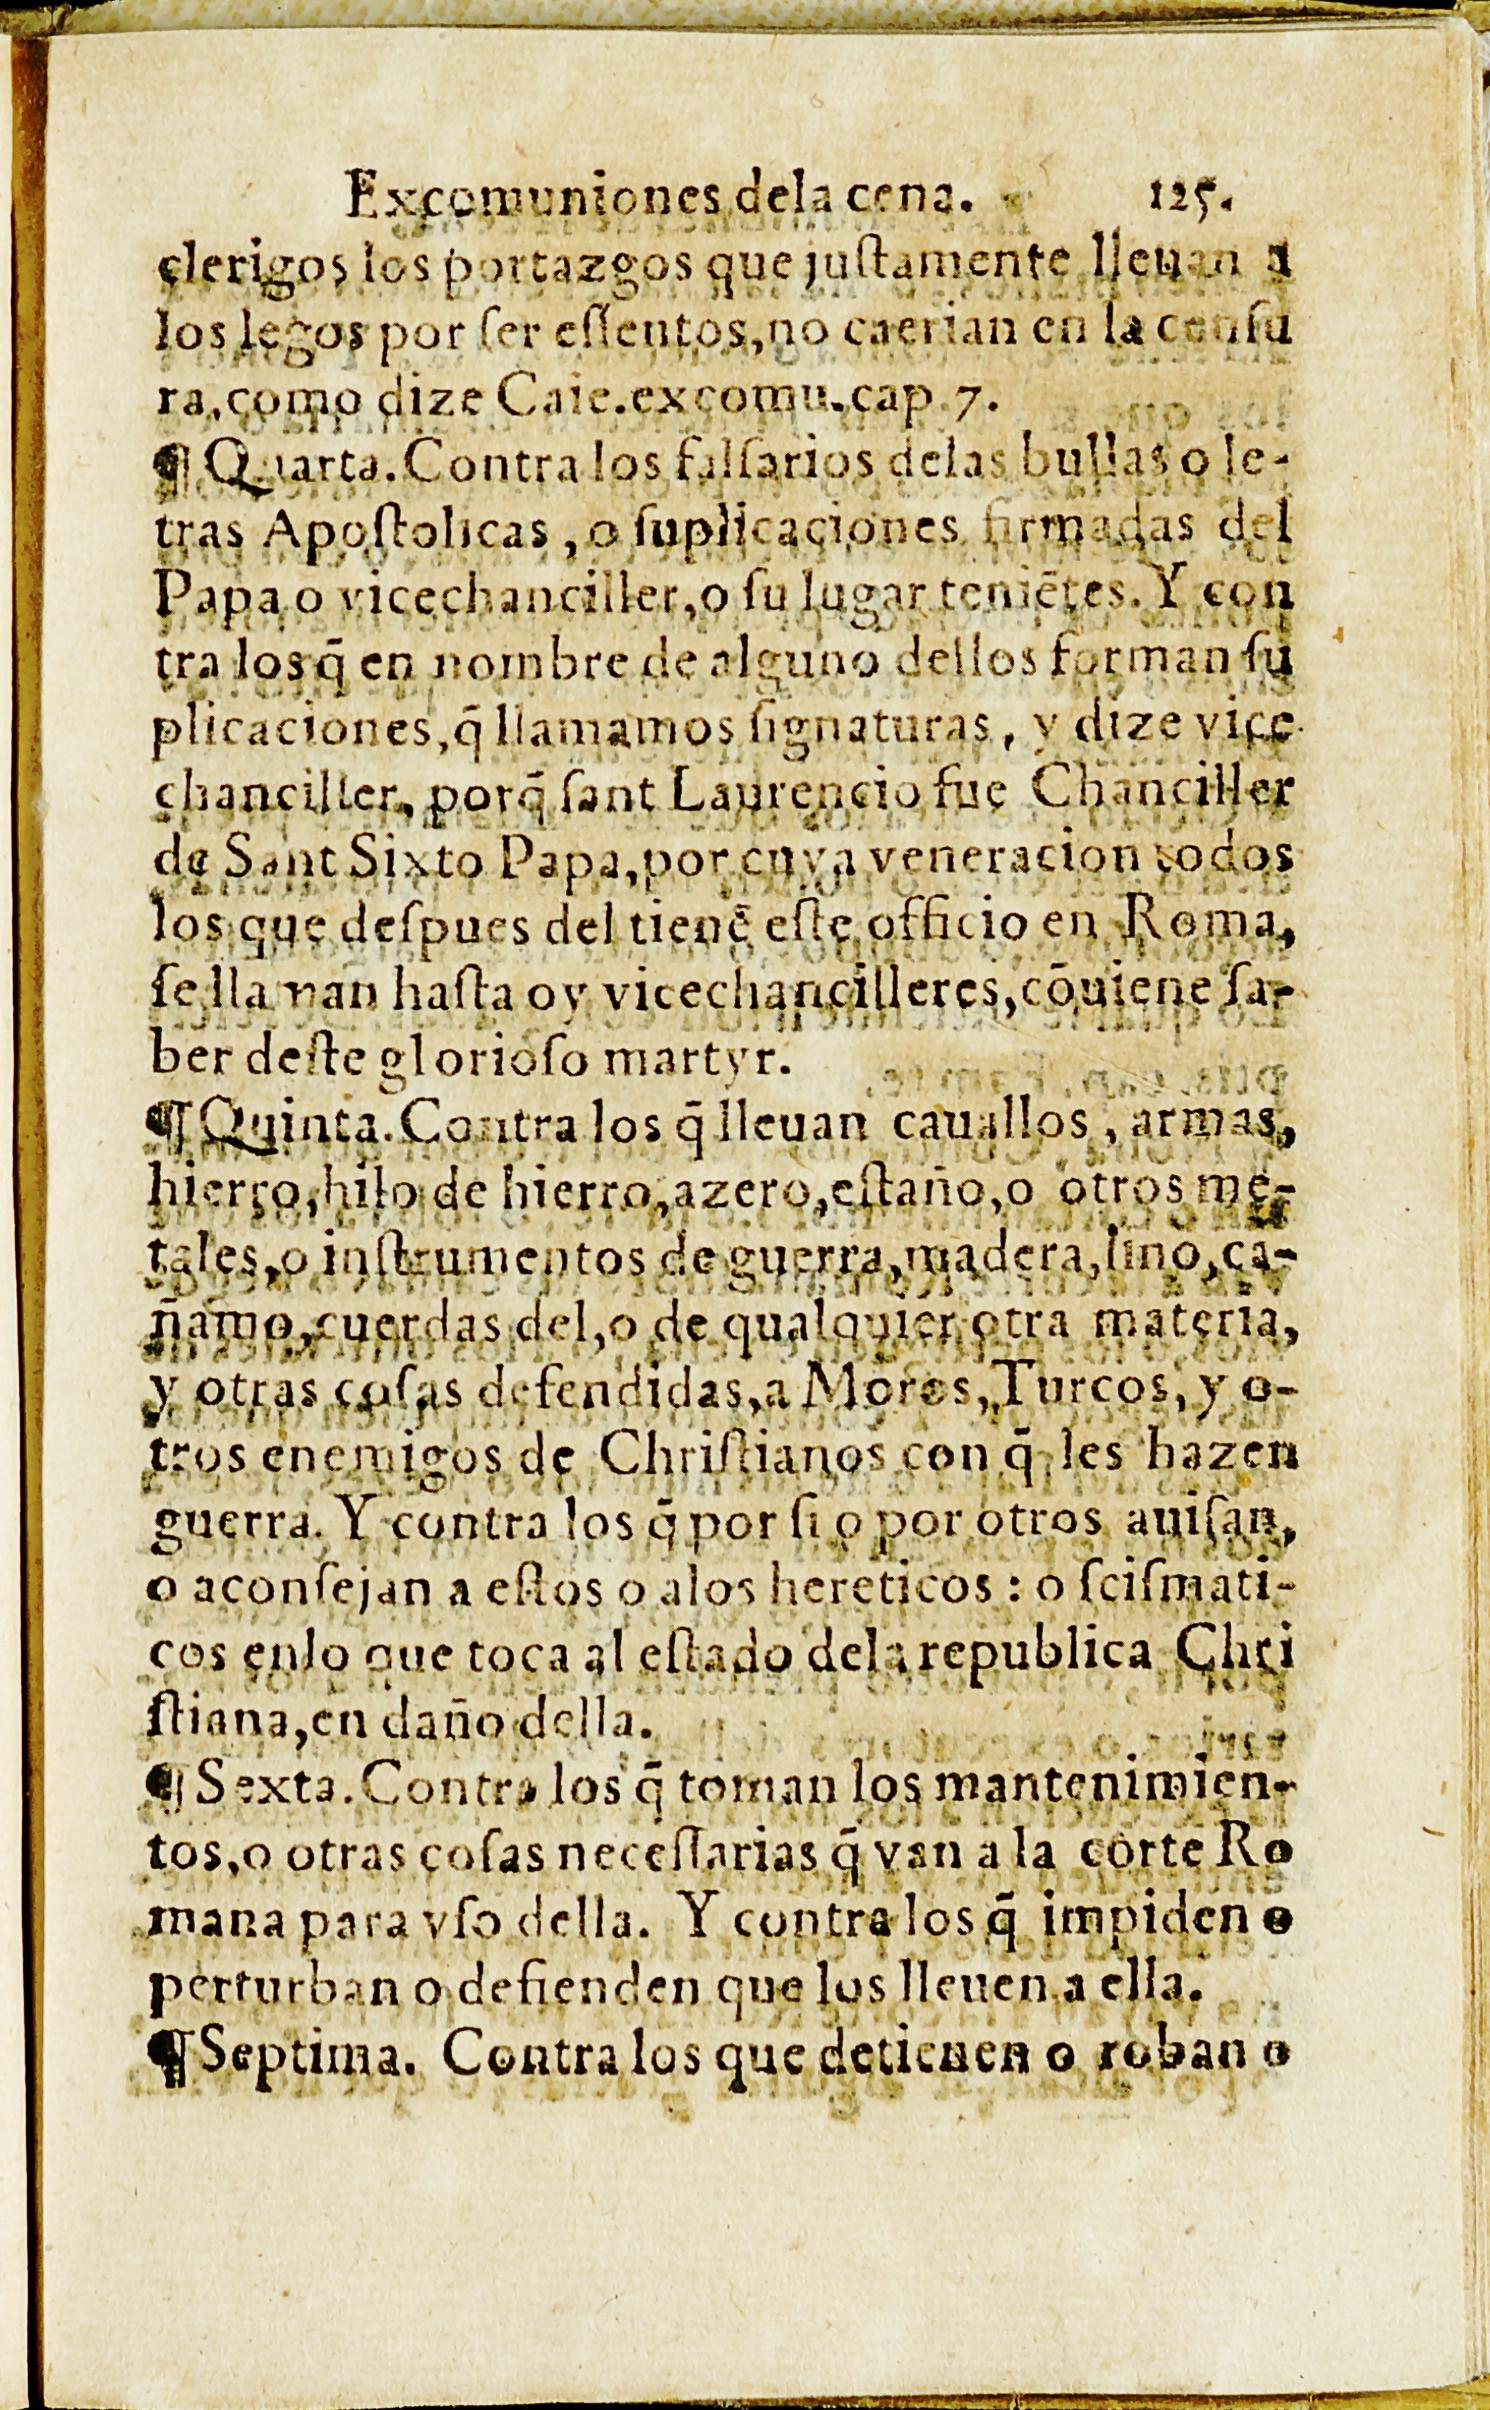 Excomuniones dela cena. 125.
clerigos los portazgos que juſtamente lleuan a
los legos por ſer eſſentos,no caerian en la cenſu
ra,como dize Caie.excomu.cap.7.
¶ Quarta.Contra los falſarios delas bullas o le-
tras Apoſtolicas, o ſuplicaciones firmadas del
Papa o vicechanciller,o ſu lugar teniẽtes.Y con
tra los q̃ en nombre de alguno dellos forman ſu
plicaciones,q̃ llamamos ſignaturas, y dize vice-
chanciller, porq̃ ſant Laurencio fue Chanciller
de Sant Sixto Papa,por cuya veneracion todos
los que deſpues del tienẽ eſte officio en Roma,
ſe llaman haſta oy vicechancilleres,cõuiene ſa-
ber deſte glorioſo martyr.
¶ Quinta.Contra los q̃ lleuan cauallos, armas,
hierro,hilo de hierro,azero,eſtaño,o otros me-
tales,o inſtrumentos de guerra,madera,lino,ca-
ñamo,cuerdas del,o de qualquier otra materia,
y otras coſas defendidas,a Moros,Turcos, y o-
tros enemigos de Chriſtianos con q̃ les hazen
guerra. Y contra los q̃ por ſi o por otros auiſan,
o aconſejan a eſtos o alos hereticos: o ſciſmati-
cos enlo que toca al eſtado dela republica Chri
ſtiana,en daño della.
¶ Sexta.Contra los q̃ toman los mantenimien-
tos,o otras coſas neceſſarias q̃ van a la corte Ro
mana para vſo della. Y contra los q̃ impiden o
perturban o defienden que los lleuen a ella.
¶ Septima. Contra los que detienen o roban o